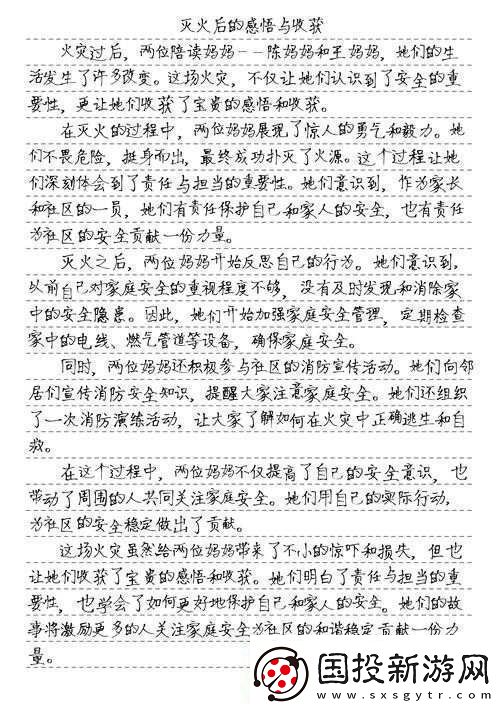 灭火后的感悟与收获
火灾过后，两位陪读妈妈--陈妈妈和王妈妈，她们的生
活发生了许多改变。这场火灾，不仅让她们认识到了安全的重
要性，更让她们收获了宝贵的感悟和收获。
在灭火的过程中，两位妈妈展现了惊人的勇气和毅力。她
们不畏危险，挺身而出，最终成功扑灭了火源。这个过程让她
们深刻体会到了责任与担当的重要性。她们意识到，作为家长
和社区的一员，她们有责任保护自己和家人的安全，也有责任
为社区的安全贡献一份力量。
灭火之后，两位妈妈开始反思自己的行为。她们意识到，
以前自己对家庭安全的重视程度不够，没有及时发现和消除家
中的安全隐患。因此，她们开始加强家庭安全管理，定期检查
家中的电线、燃气管道等设备，确保家庭安全。
同时，两位妈妈还积极参与社区的消防宣传活动。她们向邻
居们宣传消防安全知识，提醒大家注意家庭安全。她们还组织
了一次消防演练活动，让大家了解如何在火灾中正确逃生和自
救。
在这个过程中，两位妈妈不仅提高了自己的安全意识，也
带动了周围的人共同关注家庭安全。她们用自己的实际行动，
为社区的安全稳定做出了贡献。
这场火灾虽然给两位妈妈带来了不小的惊吓和损失，但也
让她们收获了宝贵的感悟和收获。她们明白了责任与担当的重
要性，也学会了如何更好地保护自己和家人的安全。她们的故
事将激励更多的人关注家庭安全为社区的和谐稳定贡献一份力
量。
国投新游网
www.sxsgytr.com